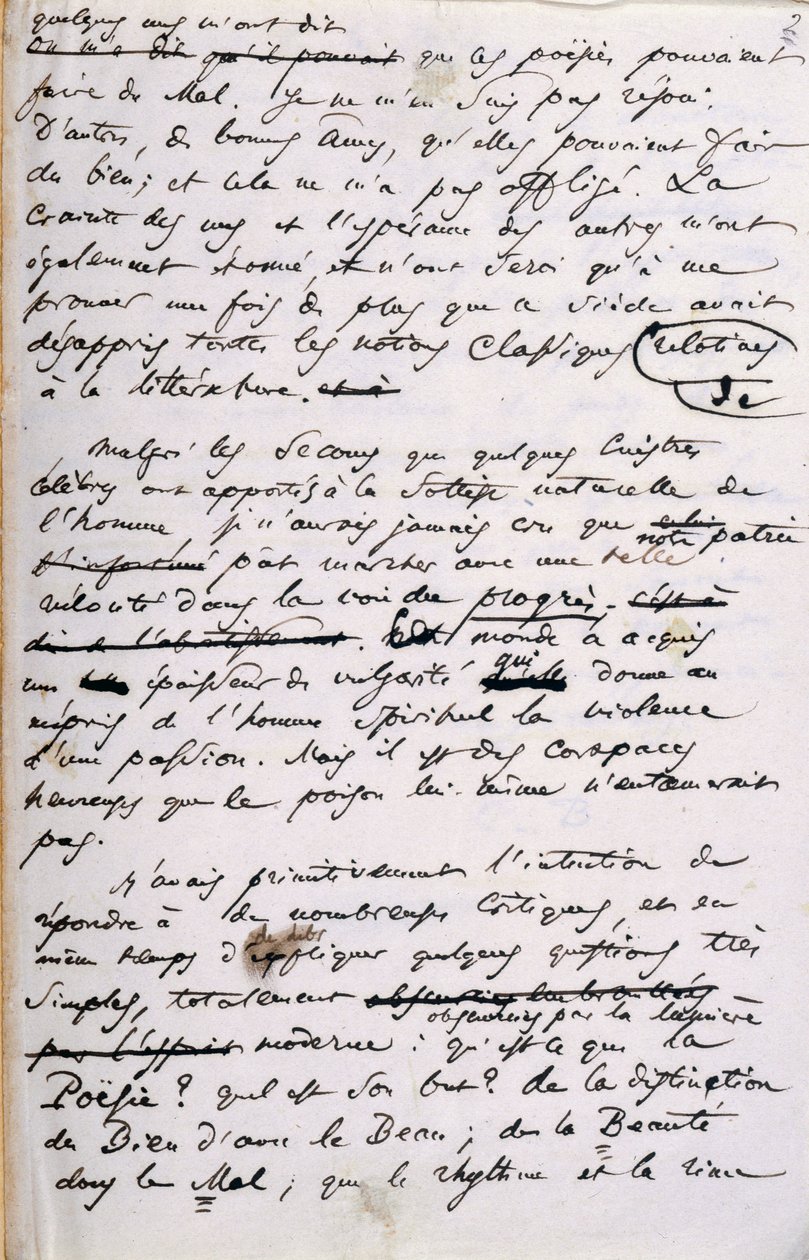 2
quelques uns m'ont dit
on m'a dit qu'il pouvait que ces poësies pouvaient
faire du Mal. Je ne m'en suis pas réjoui.
D'autres, de bonnes âmes, qu'elles pouvaient faire
du bien; et cela ne m'a pas affligé. La
crainte des uns et l'espérance des autres m'ont
également étonné, et n'ont servi qu'à me
prouver une fois de plus que ce siècle avait
désappris toutes les notions classiques relatives
à la littérature. et à de
Malgré les secours que quelques cuistres
célèbres ont apportés à la sottise naturelle de
l'homme, je n'aurais jamais cru que notre patrie
pût marcher avec une telle
vélocité dans la voie du progrès. c'est à
dire de l'abrutissement. Ce monde a acquis
une épaisseur de vulgarité qui donne au
mépris de l'homme spirituel la violence
d'une passion. Mais il est des carapaces
heureuses que le poison lui-même n'entamerait
pas.
J'avais primitivement l'intention de
répondre à de nombreuses critiques, et en
même temps d'expliquer quelques questions très
simples, totalement
obscurcies par la lumière
par l'esprit moderne : qu'est ce que la
Poësie? quel est son but? de la distinction
du Bien d'avec le Beau; de la Beauté
dans le Mal; que le rhythme et la rime